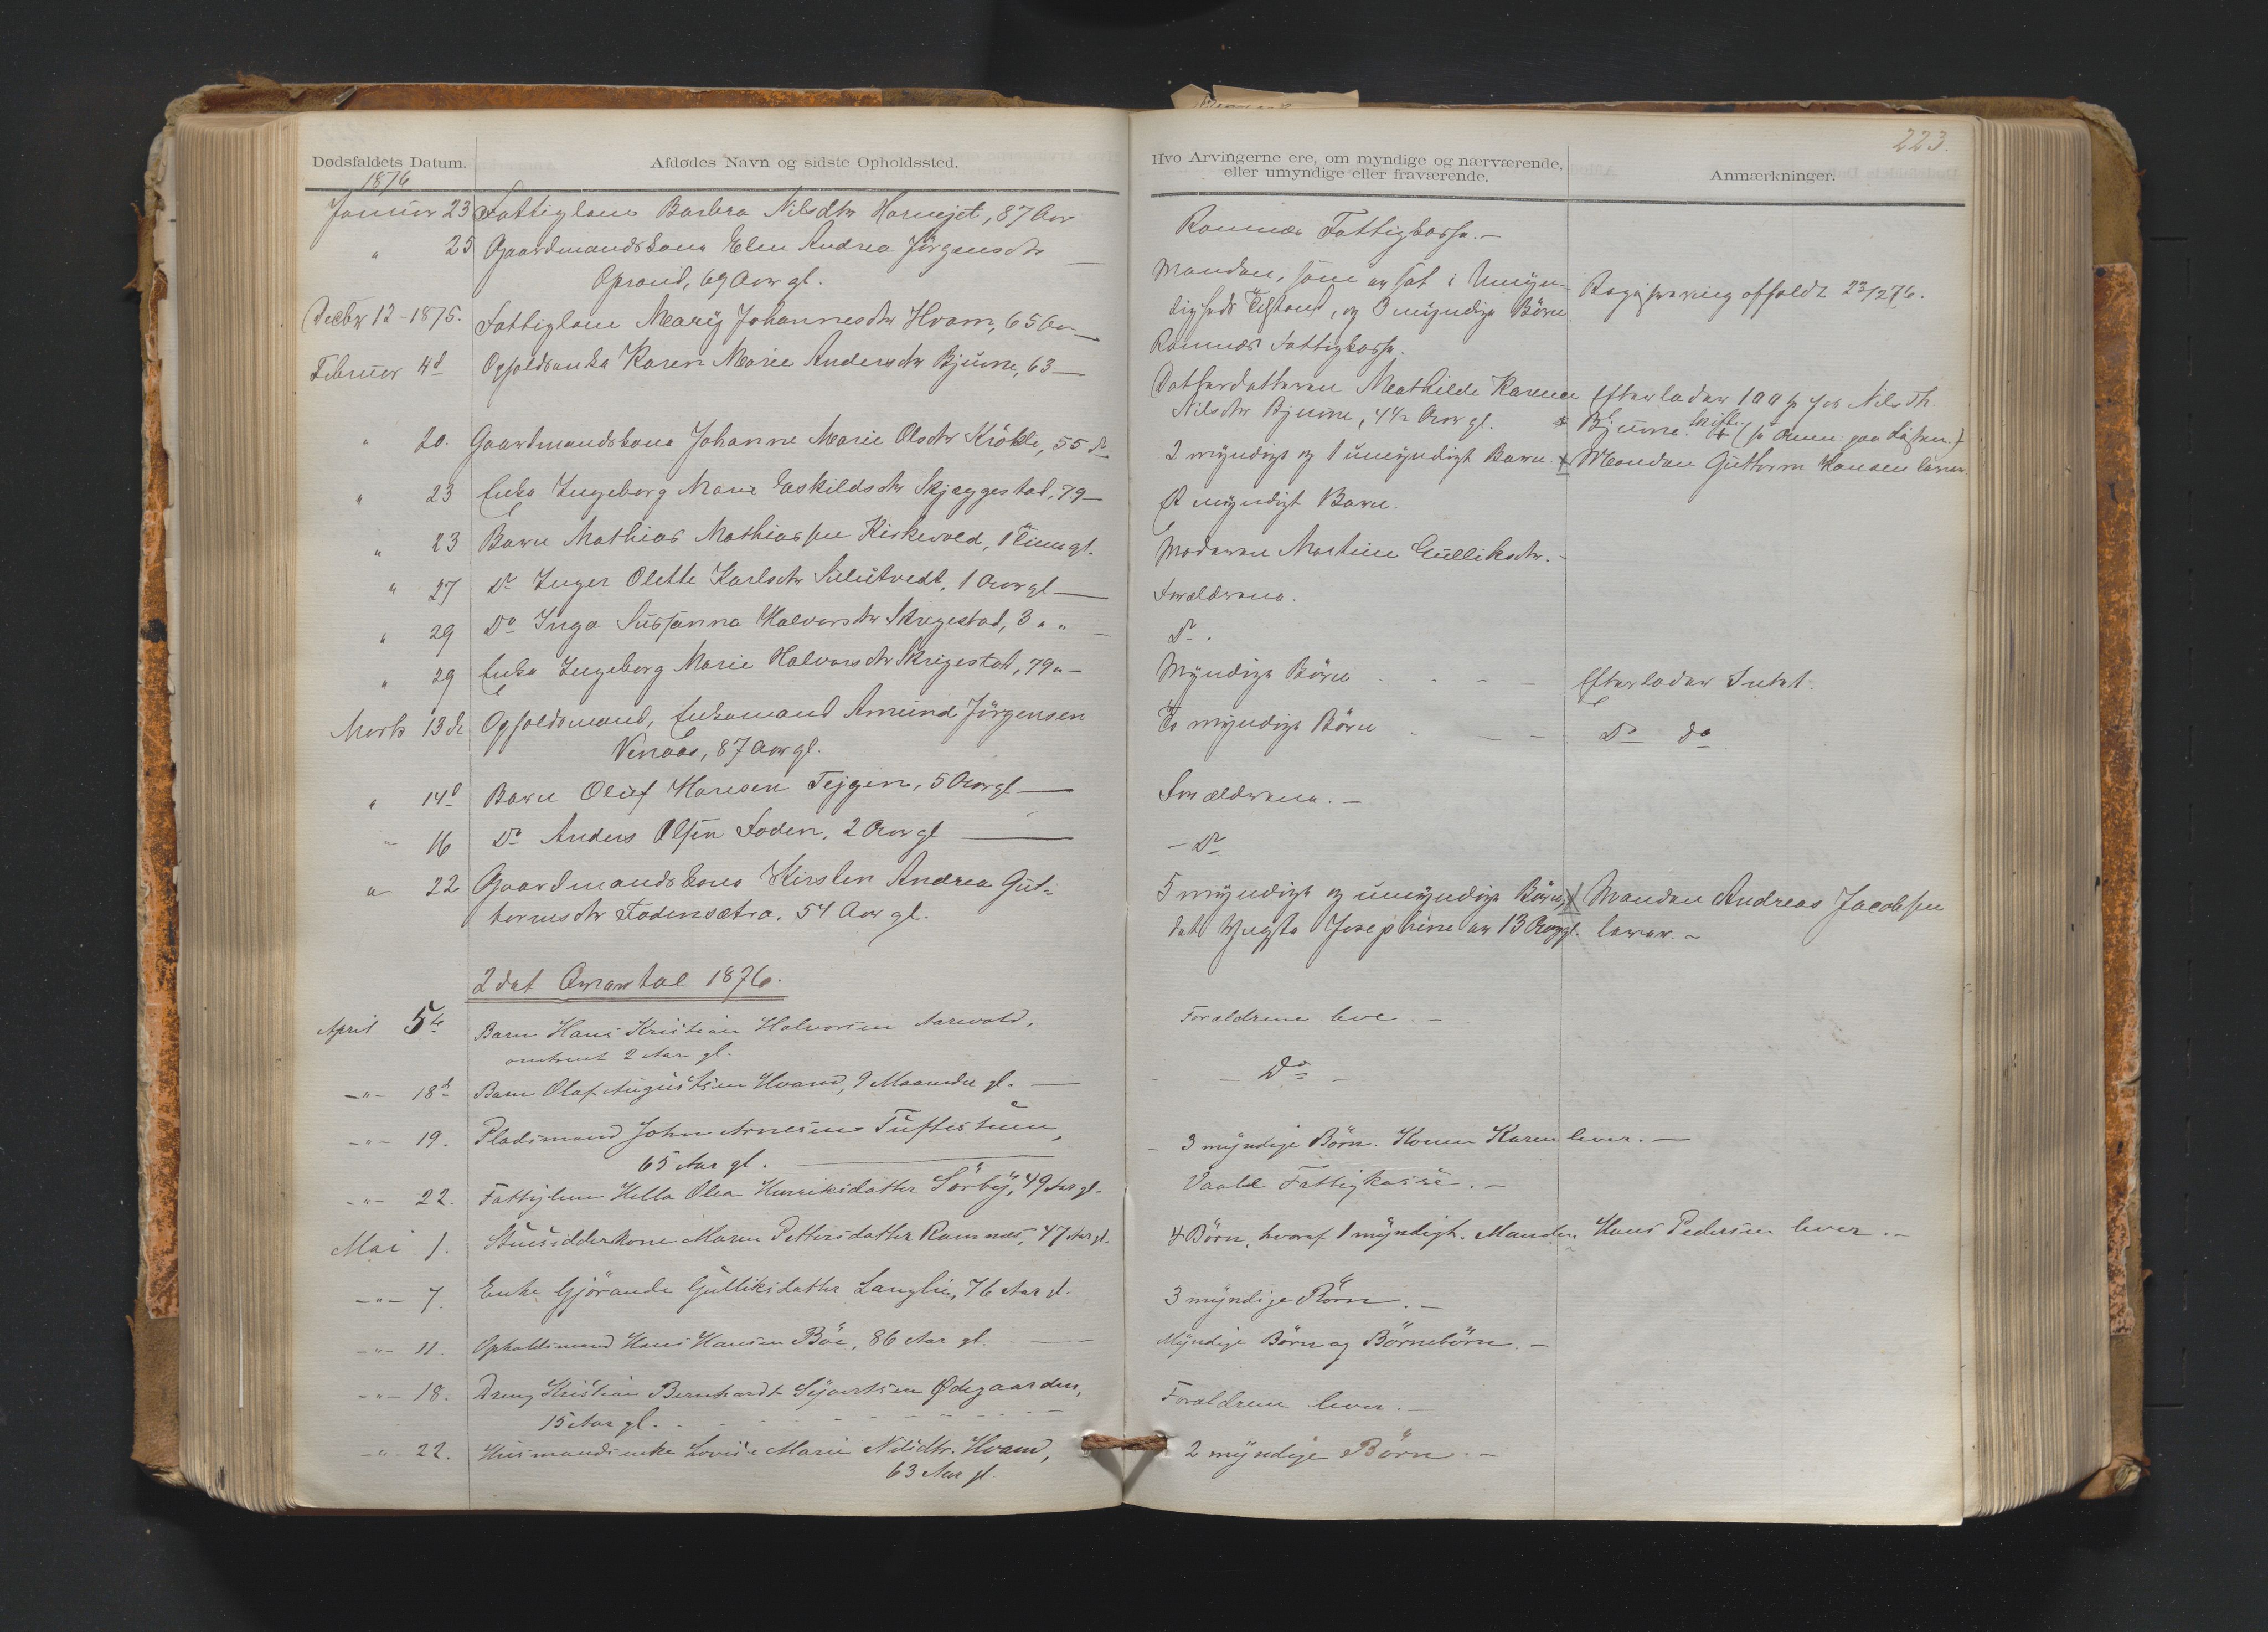 Dødsfaldets Datum.
Afdødes Navn og sidste Opholdssted.
1876
Januar 23 Fattiglem Barbra Nilsdtr Hornejet, 87 Aar
" 25 Gaardmandskone Elen Andrea Jörgensdtr
Oprand, 69 Aar gl.
Decbr 12 - 1875. Fattiglem Mary Johannesdtr Hvam, 65 Aar
Februar 4d Opholdsenke Karen Marie Andersdtr Bjune, 63 —
" 20. Gaardmandskone Johanne Marie Olsdtr Krökli, 55 Do
" 23 Enke Ingeborg Marie Eskildsdtr Skjæggestad, 79 —
" 23 Barn Mathias Mathiassen Kirkevold, 1 Time gl.
" 27 Do Inger Olette Karlsdtr Sulutvedt, 1 Aar gl —
" 29 Do Inga Susanna Halvorsdtr Skregestad, 3 " " —
" 29 Enke Ingeborg Marie Halvorsdtr Skrigestad, 79 " —
Marts 13de Opholdsmand, Enkemand Amund Jörgensen
Venaas, 87 Aar gl.
" 14d Barn Oluf Hansen Tejgen, 5 Aar gl —
" 16 Do Anders Olsen Foden, 2 Aar gl —
" 22 Gaardmandskone Kirsten Andrea Gut-
hormsdtr Fodensætra, 54 Aar gl.
2det Qvartal 1876.
April 5te Barn Hans Kristian Halvorsen Aarvold,
omtrent 2 Aar gl.
-"- 18d Barn Olaf Augustsen Hvam, 9 Maaneder gl. —
-"- 19. Pladsmand John Arnesen Tuftestuen,
65 Aar gl. —
-"- 22. Fattiglem Hella Olea Henriksdatter Sörby, 49 Aar gl.
Mai 1. Stuesidderkone Maren Pettersdatter Ramnæs, 47 Aar gl.
-"- 7. Enke Gjörande Gulliksdatter Langlie, 76 Aar gl.
-"- 11. Opholdsmand Hans Hansen Böe, 86 Aar gl. —
-"- 18. Dreng Kristian Bernhardt Syvertsen Ødegaarden,
15 Aar gl. -
-"- 22. Husmandsenke Lovise Marie Nilsdtr. Hvam,
63 Aar gl.
223.
Hvo Arvingerne ere, om myndige og nærværende,
eller umyndige eller fraværende.
Anmærkninger.
Ramnæs Fattigkasse. —
Manden, som er sat i Umyn-
digheds Tilstand, og 3 myndige Börn
Registrering affholdt 23/2 76.
Ramnæs Fattigkasse.
Datterdatteren Mathilde Karine
Nilsdtr Bjune, 4 1/2 Aar gl.
Efterlader 100 Nils Th.
Bjune. Skifte
2 myndige og 1 umyndigt Barn. Manden Guttorm Hansen lever
Et myndigt Barn.
Moderen Martine Gulliksdtr. —
Forældrene.
Do.
Myndige Börn - - - Efterlader Intet.
To myndige Börn - - - Do do
Forældrene. —
— Do
5 myndige og umyndige Börn,
det yngste Josephine er 13 Aar gl.
Manden Andreas Jacobsen
lever. —
Forældrene leve. —
— Do —
— 3 myndige Börn. Konen Karen lever. —
Vaale Fattigkasse. —
4 Börn, hvoraf 1 myndigt. Manden Hans Pedersen lever. —
3 myndige Börn. —
Myndige Börn og Börnebörn. —
Forældrene lever. —
2 myndige Börn. —